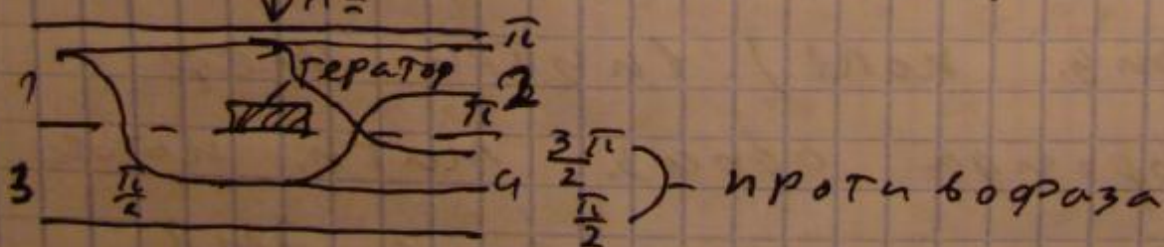 π
1 гератор 2
π
3 π/2 4 3/2 π
π/2 - противофаза